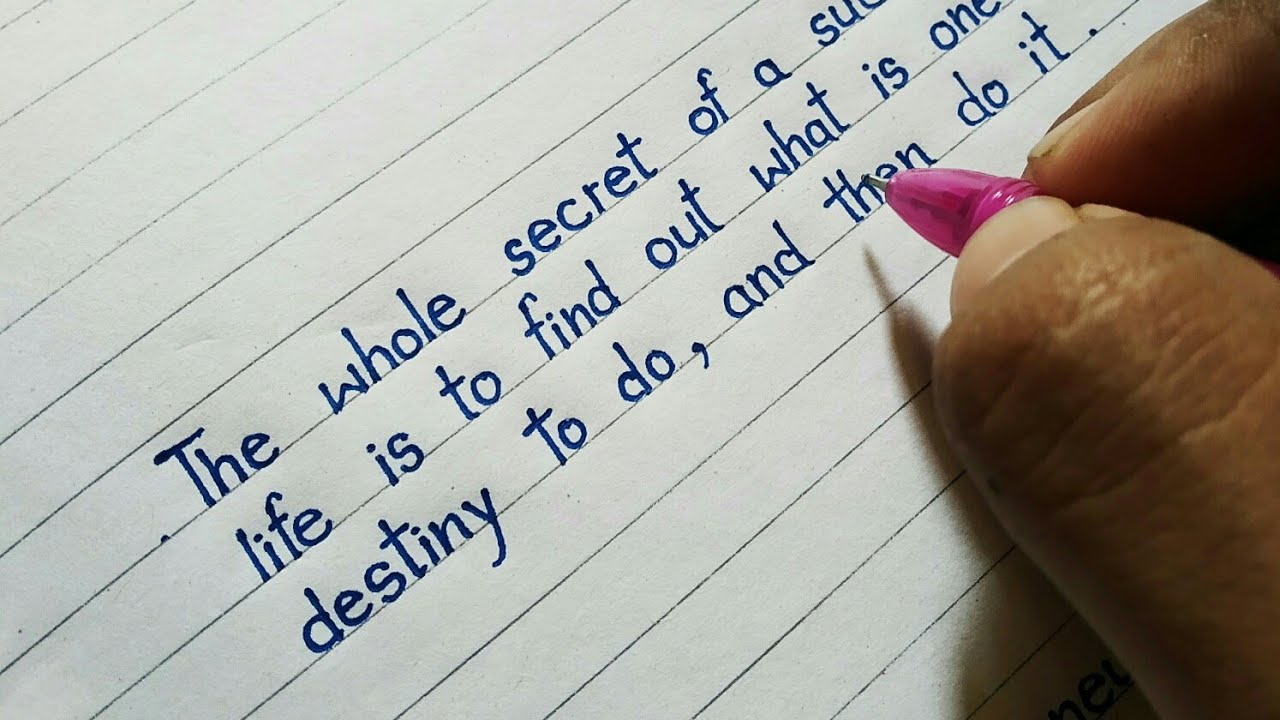 The whole secret of a suc
life is to find out what is one
destiny to do, and then do it.